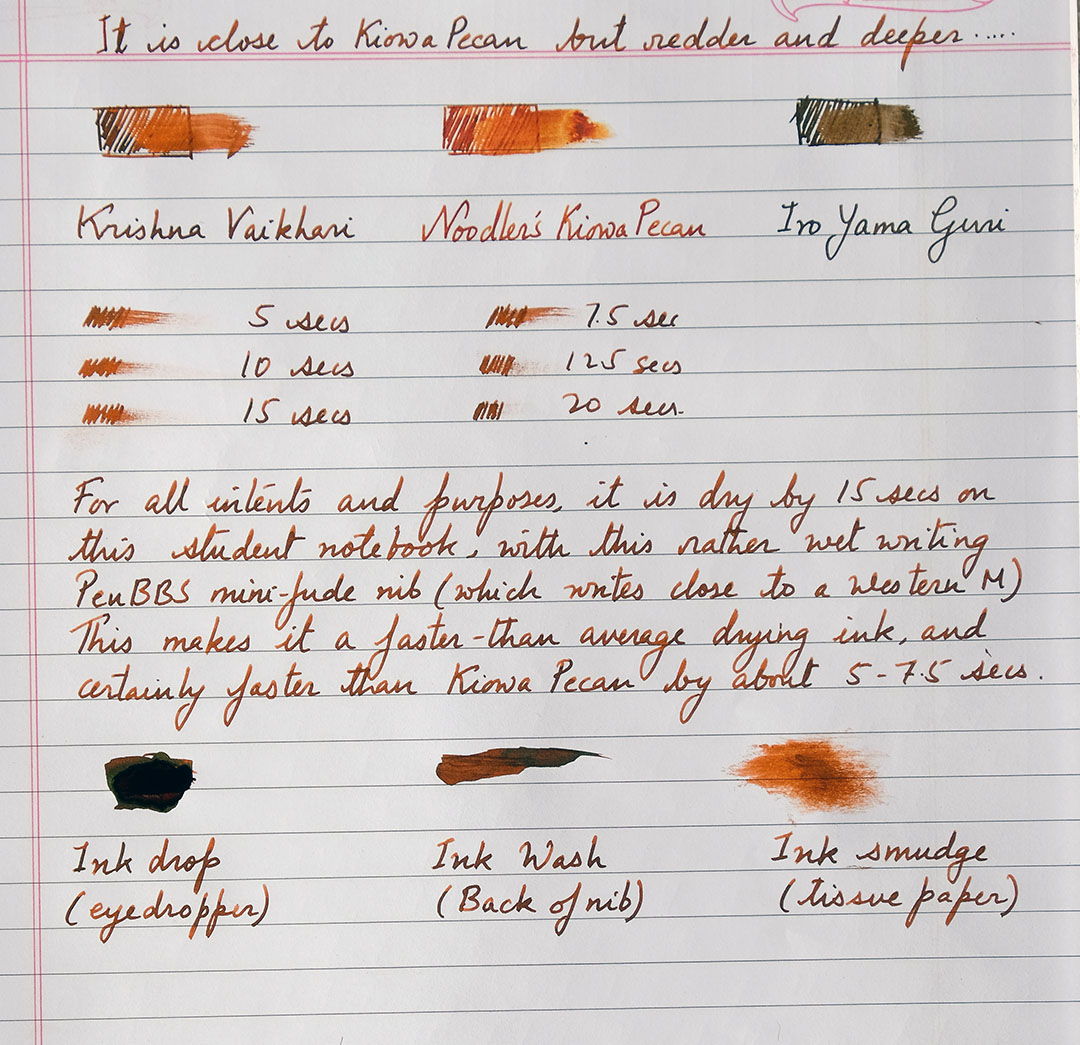 It is close to Kiowa Pecan but redder and deeper.....
Krishna Vaikhari Noodler's Kiowa Pecan Iro Yama Guri
5 secs 7.5 sec
10 secs 12.5 secs
15 secs 20 secs.
For all intents and purposes, it is dry by 15 secs on
this student notebook, with this rather wet writing
PenBBS mini-fude nib (which writes close to a western M)
This makes it a faster-than average drying ink, and
certainly faster than Kiowa Pecan by about 5-7.5 secs.
Ink drop Ink Wash Ink smudge
(eyedropper) (Back of nib) (tissue paper)